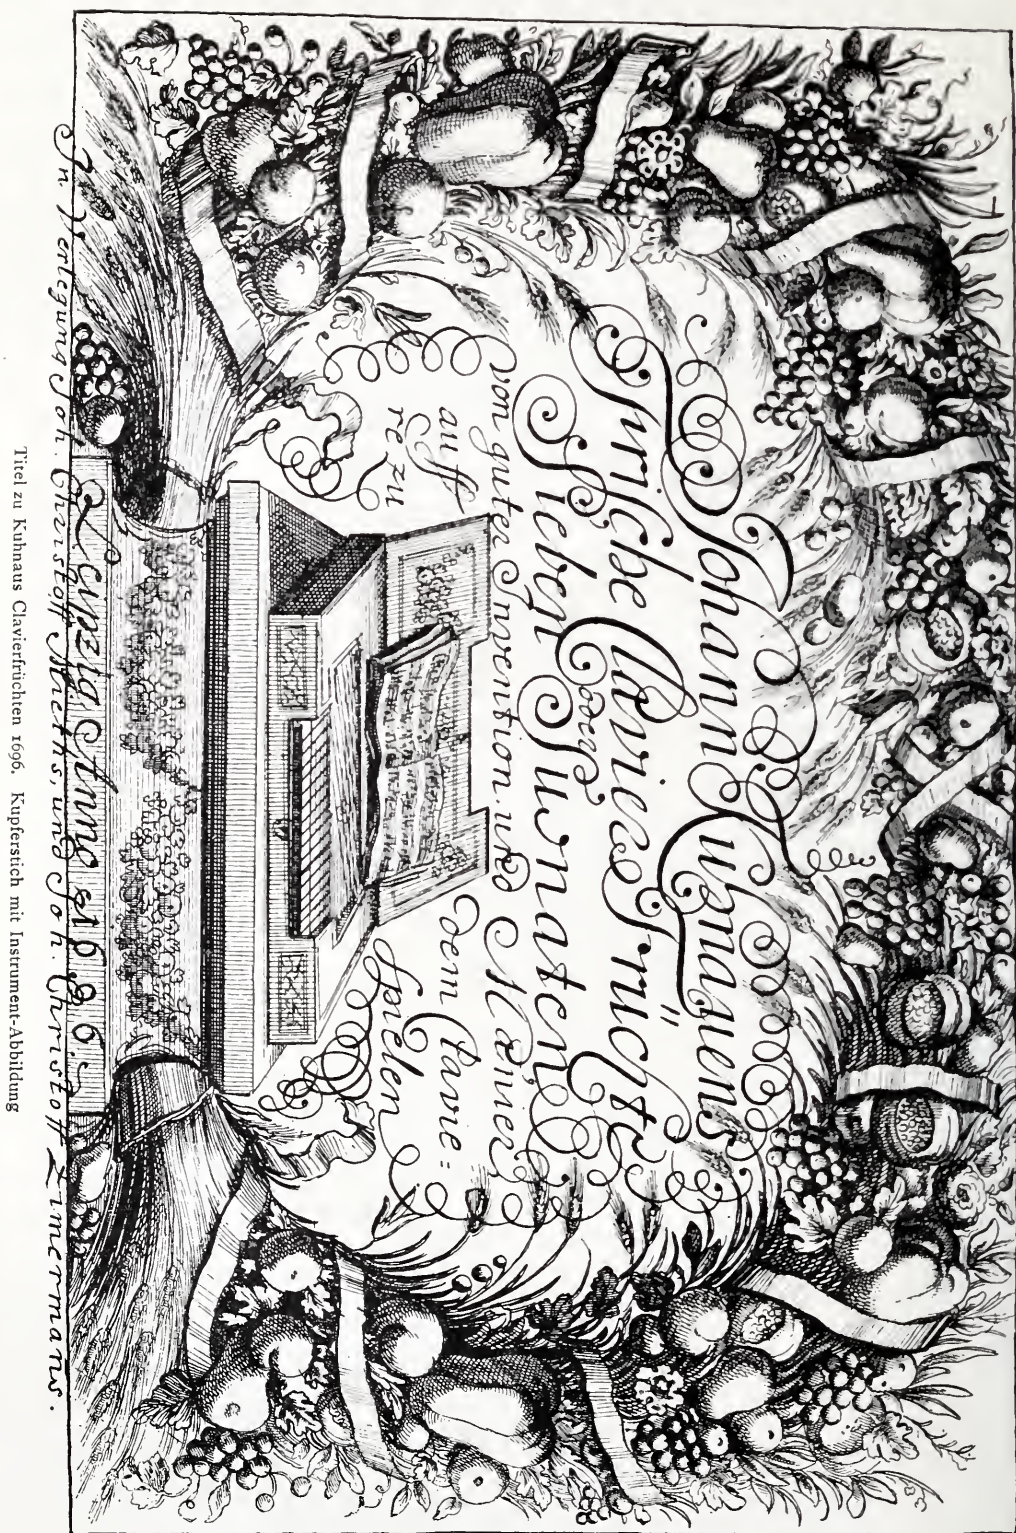 Johann Kuhnauens
Frische Clavier Früchte
oder
Sieben Suonaten
von guter Invention und Manier
auff dem Clavie=
re zu Spielen
Leipzig Anno 1696.
In Verlegung Joh. Christoff Mieths, und Joh. Christoff Zimermans.
Titel zu Kuhnaus Clavierfrüchten 1696. Kupferstich mit Instrument-Abbildung